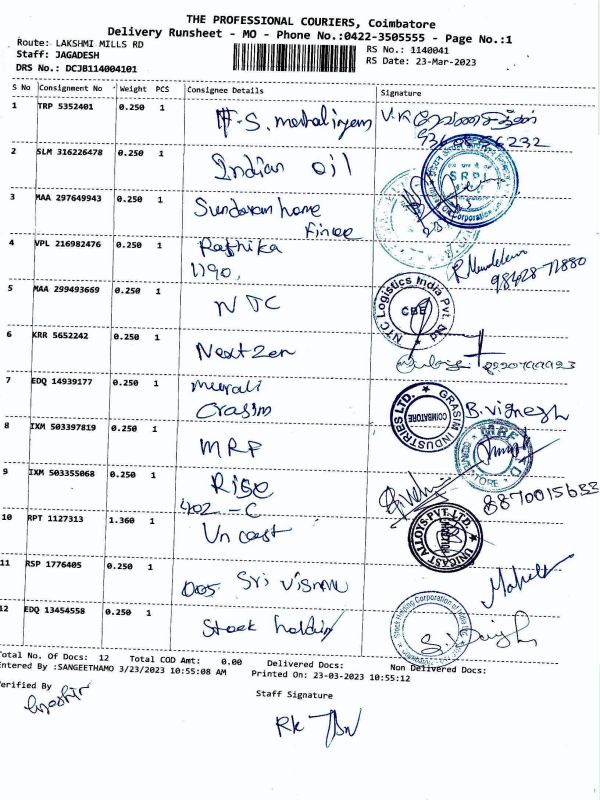 THE PROFESSIONAL COURIERS, Coimbatore
Delivery Runsheet - MO - Phone No.:0422-3505555 - Page No.:1
Route: LAKSHMI MILLS RD
RS No.: 1140041
Staff: JAGADESH
RS Date: 23-Mar-2023
DRS No.: DCJB114004101
S No Consignment No Weight PCS Consignee Details Signature
1 TRP 5352401 0.250 1
2 SLM 316226478 0.250 1 Indian oil
SRP
3 MAA 297649943 0.250 1 Sundaram home
Finee
4 VPL 216982476 0.250 1 Rathika
1190,
98428-72880
5 MAA 299493669 0.250 1 NTC
NTC Logistics India Pvt. Ltd
CBE
6 KRR 5652242 0.250 1 Nextzen
7 EDQ 14939177 0.250 1 murali
Grasim
GRASIM INDUSTRIES LTD.
COIMBATORE
B. Vignesh
8 IXM 503397819 0.250 1 MRP
MRF
9 IXM 503355068 0.250 1 Rise
402 - C
8870015633
10 RPT 1127313 1.360 1 Uncast
UNICAST ALLOYS PVT. LTD.
11 RSP 1776405 0.250 1 Sri Vishnu
12 EDQ 13454558 0.250 1 Stock holding
Stock Holding Corporation of India
Total No. Of Docs: 12 Total COD Amt: 0.00 Delivered Docs: Non Delivered Docs:
Entered By :SANGEETHAMO 3/23/2023 10:55:08 AM Printed On: 23-03-2023 10:55:12
Verified By
Staff Signature